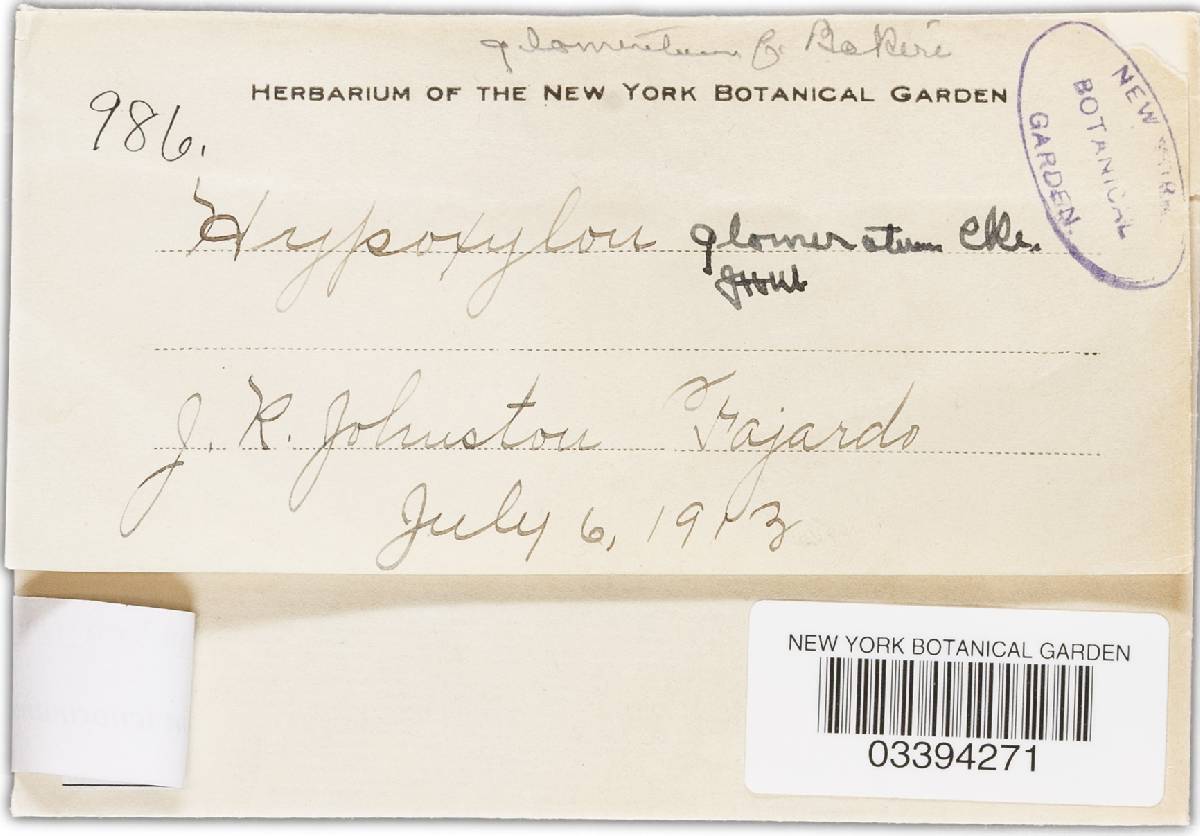 glomeratum C. Bakeri
HERBARIUM OF THE NEW YORK BOTANICAL GARDEN
NEW YORK
BOTANICAL
GARDEN
986.
Hypoxylon glomeratum Cke.
J. R. Johnston Fajardo
July 6, 1913
NEW YORK BOTANICAL GARDEN
03394271